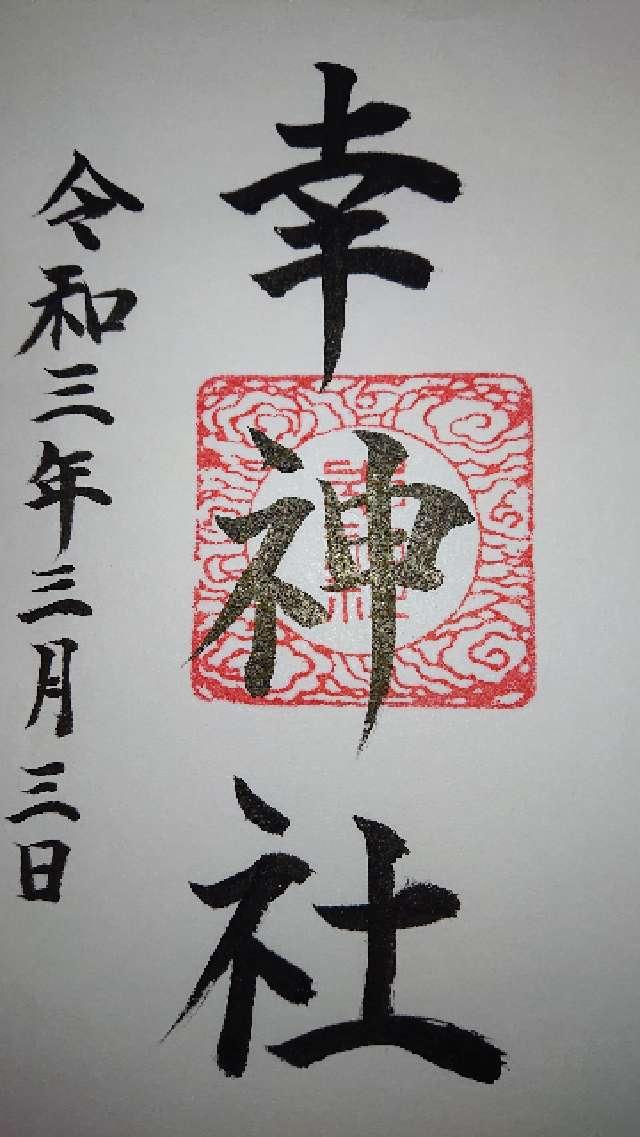 幸神社
令和三年三月三日